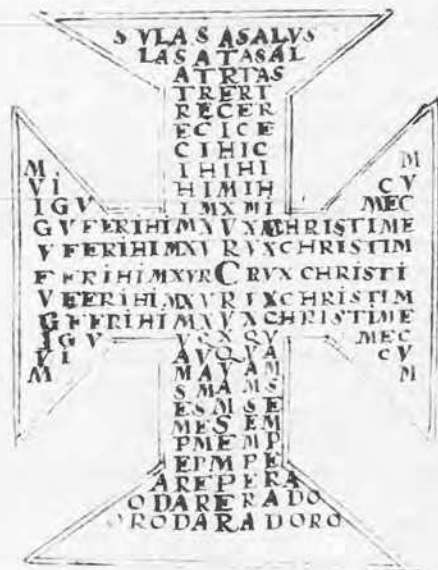 SVLASASALVS
LASATASAL
ATRTAS
TRERT
RECER
ECICE
CIHIC
M. IHIHI M
VI HIMIH CV
IGV IMXMI MEC
GVFERIHIMXVXCHRISTIME
VFERIHIMXVRVXCHRISTIM
FERIHIMXVRCRVXCHRISTI
VEERIHIMXVRVXCHRISTIM
GFFERIHIMXVXCHRISTIME
IGV VSXQV MEC
VI AVQVA CV
M MAVAM M
SMAMS
ESMSE
MESEM
PMEMP
EPMPE
AREPERA
ODARERADO
ORODARADORO